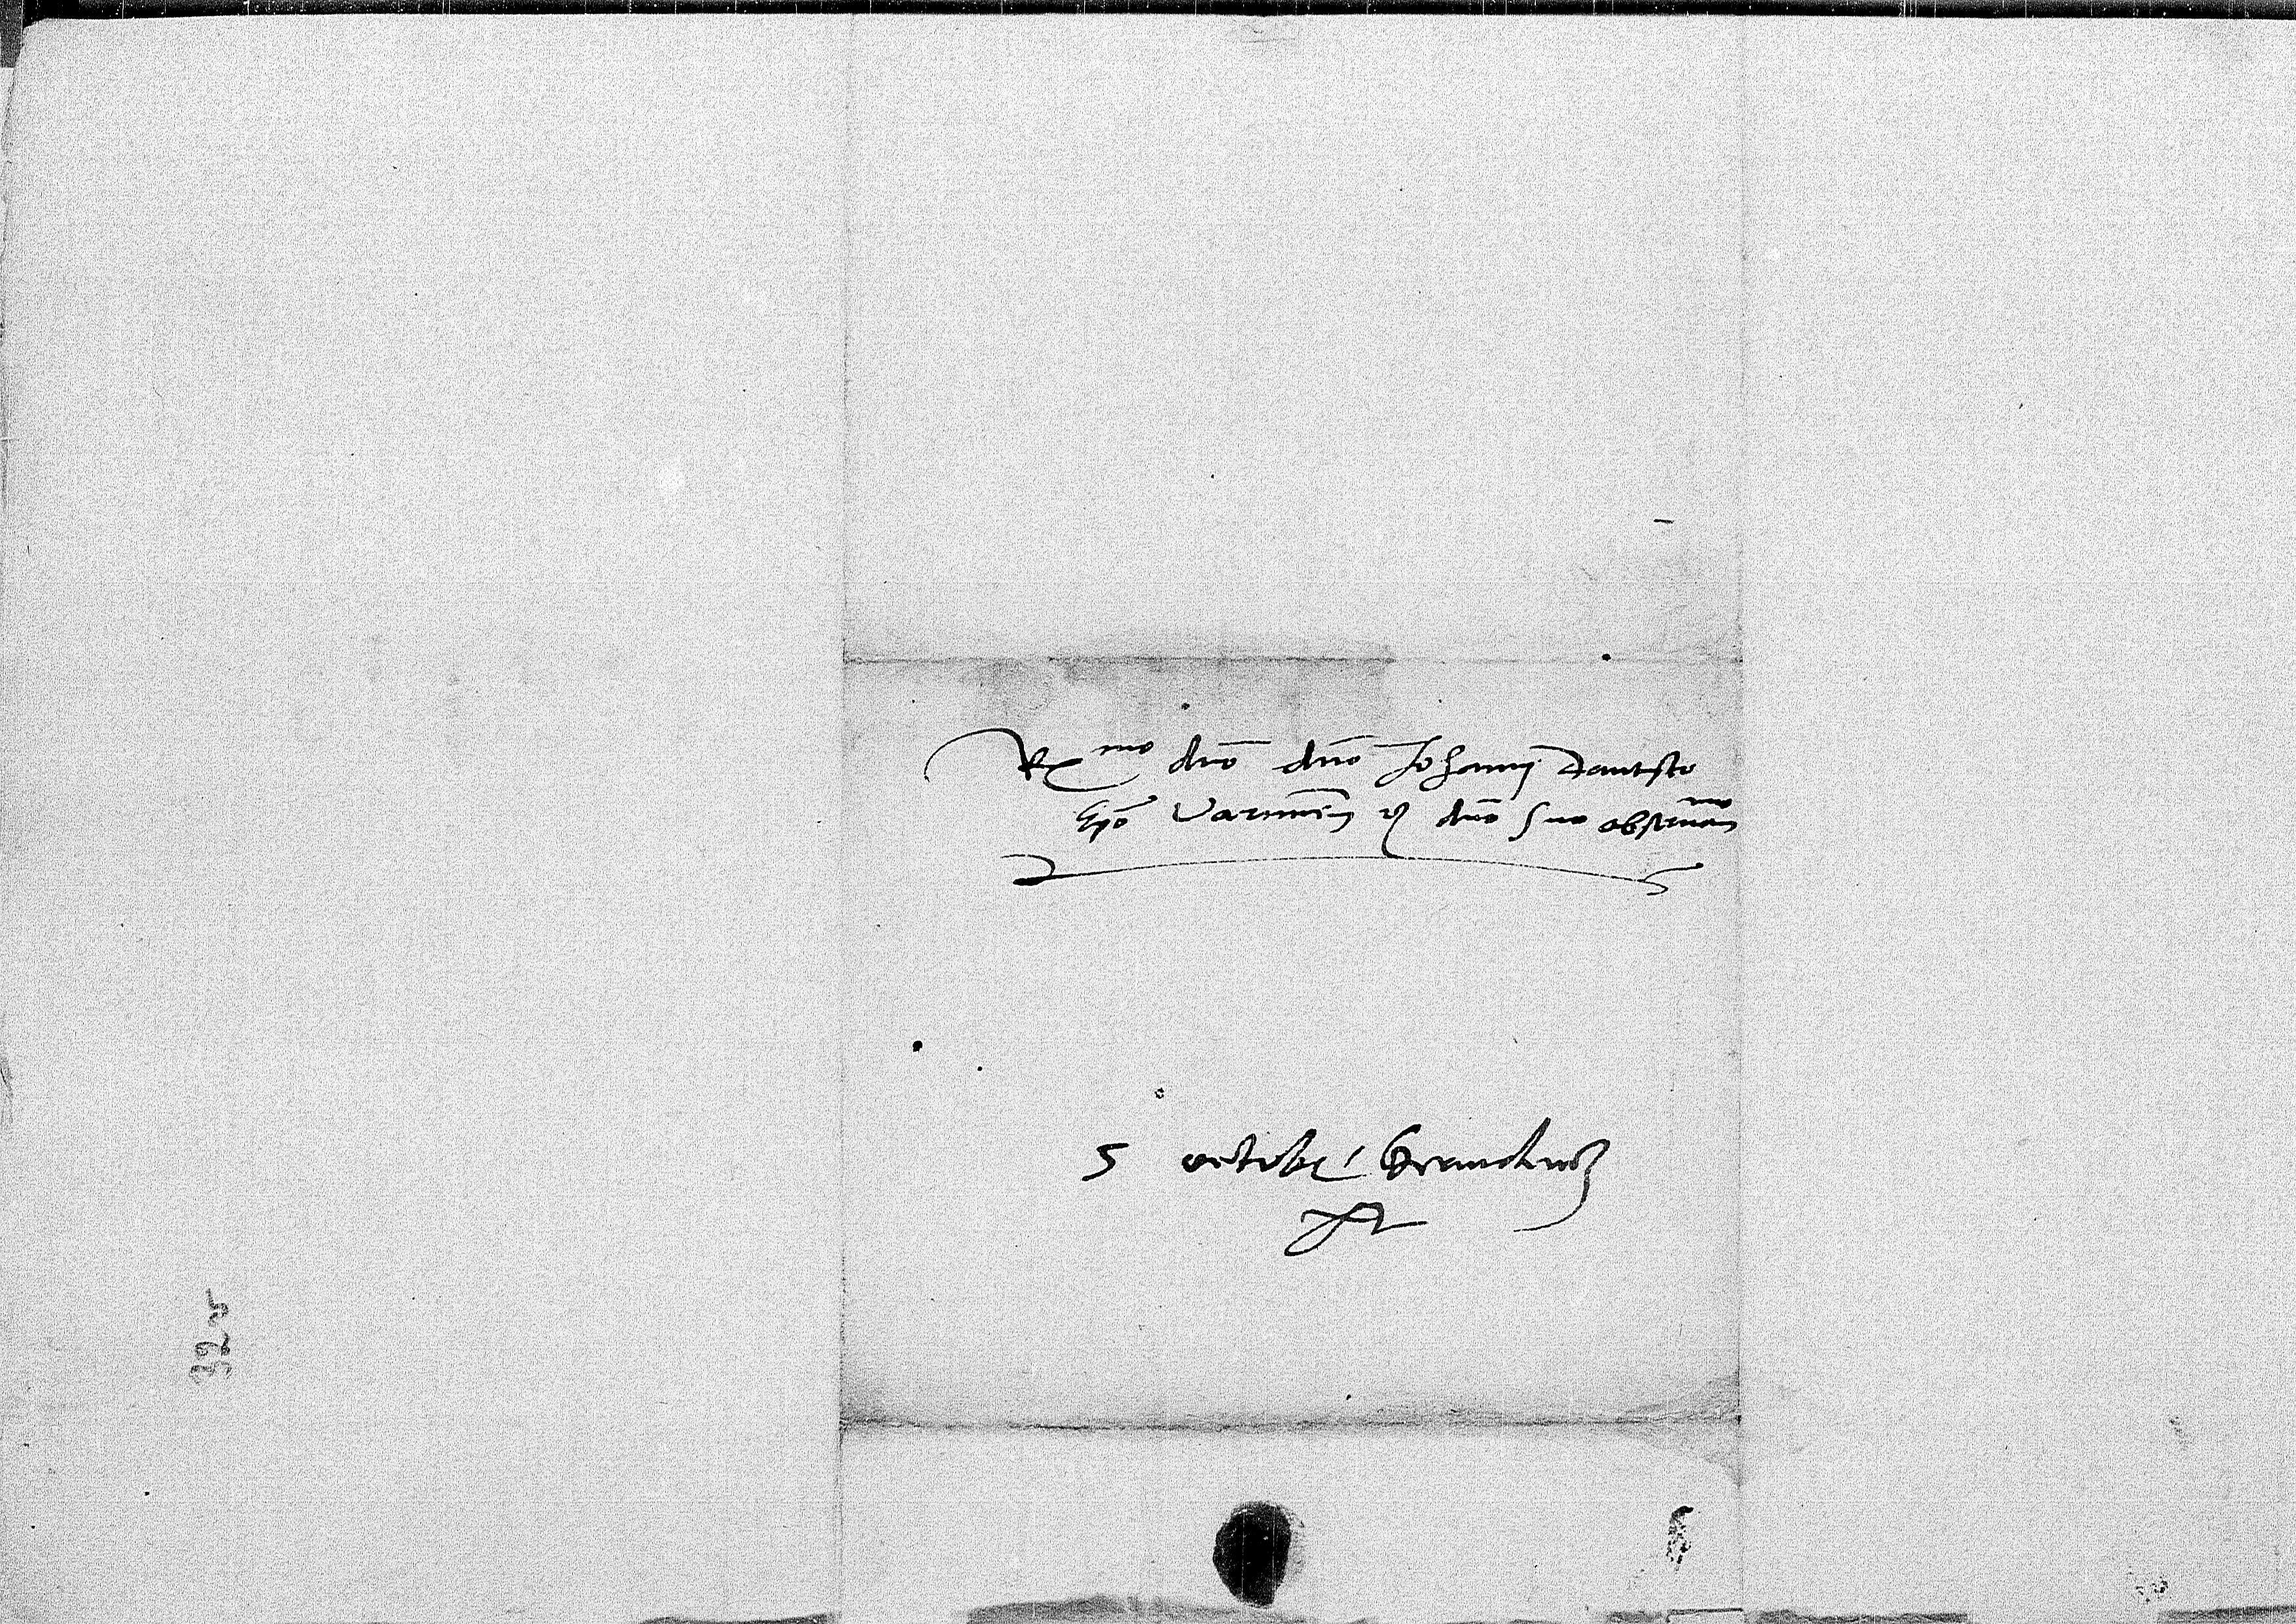 Rx mo dno dno Johanni Dantisco
Epo Varmien et dno suo obseruan mo
5 octobr
32